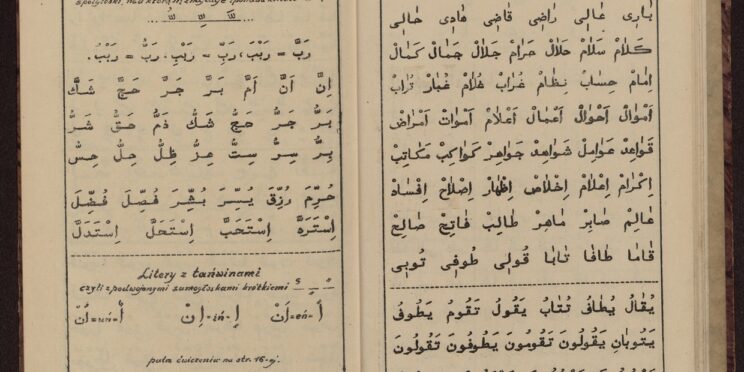 بَارِى عَالِى رَاضِى قَاضِى هَادِى حَالِى
كَلَامْ سَلَامْ حَلَالْ حَرَامْ جَلَالْ جَمَالْ كَمَالْ
اِمَامْ حِسَابْ نِظَامْ غُرَابْ غُلَامْ غُبَارْ تُرَابْ
اَمْوَالْ اَحْوَالْ اَعْمَالْ اَعْلَامْ اَمْوَاتْ اَمْرَاضْ
قَوَاعِدْ عَوَامِلْ شَوَاهِدْ جَوَاهِرْ كَوَاكِبْ مَكَاتِبْ
اِكْرَامْ اِعْلَامْ اِخْلَاصْ اِظْهَارْ اِصْلَاحْ اِفْسَادْ
عَالِمْ صَابِرْ مَاهِرْ طَالِبْ فَاتِحْ صَالِحْ
قَامَا طَافَا تَابَا قُولِى طُوفِى تُوبِى
يُقَالُ يُطَافُ تُتَابُ يَقُولُ تَقُومُ يَطُوفُ
يَتُوبَانِ يَقُولُونَ تَقُومُونَ يَطُوفُونَ تَقُولُونَ
رَبَّ = رَبْبَ، رَبِّ = رَبْبِ، رَبُّ = رَبْبُ.
اِنَّ اَنَّ اَمَّ بَرَّ جَرَّ حَجَّ شَكَّ
بَرُّ جَرُّ حَجُّ شَكُّ ذَمُّ حَقُّ شَرُّ
بِرُّ سِرُّ سِتُّ عِزُّ ظِلُّ حِلُّ حِسُّ
حُرِّمَ رُزِّقَ يُسِّرَ بُشِّرَ فُصِّلَ فُضِّلَ
اِسْتَرَدَّ اِسْتَحَبَّ اِسْتَحَلَّ اِسْتَدَلَّ
Litery z tańwinami
czyli z podwojonymi samogłoskami krótkiemi ـً ـٍ ـٌ
اً =en= اَنْ اٍ =in= اِنْ اٌ =un= اُنْ
patrz ćwiczenia na str. 16-ej.